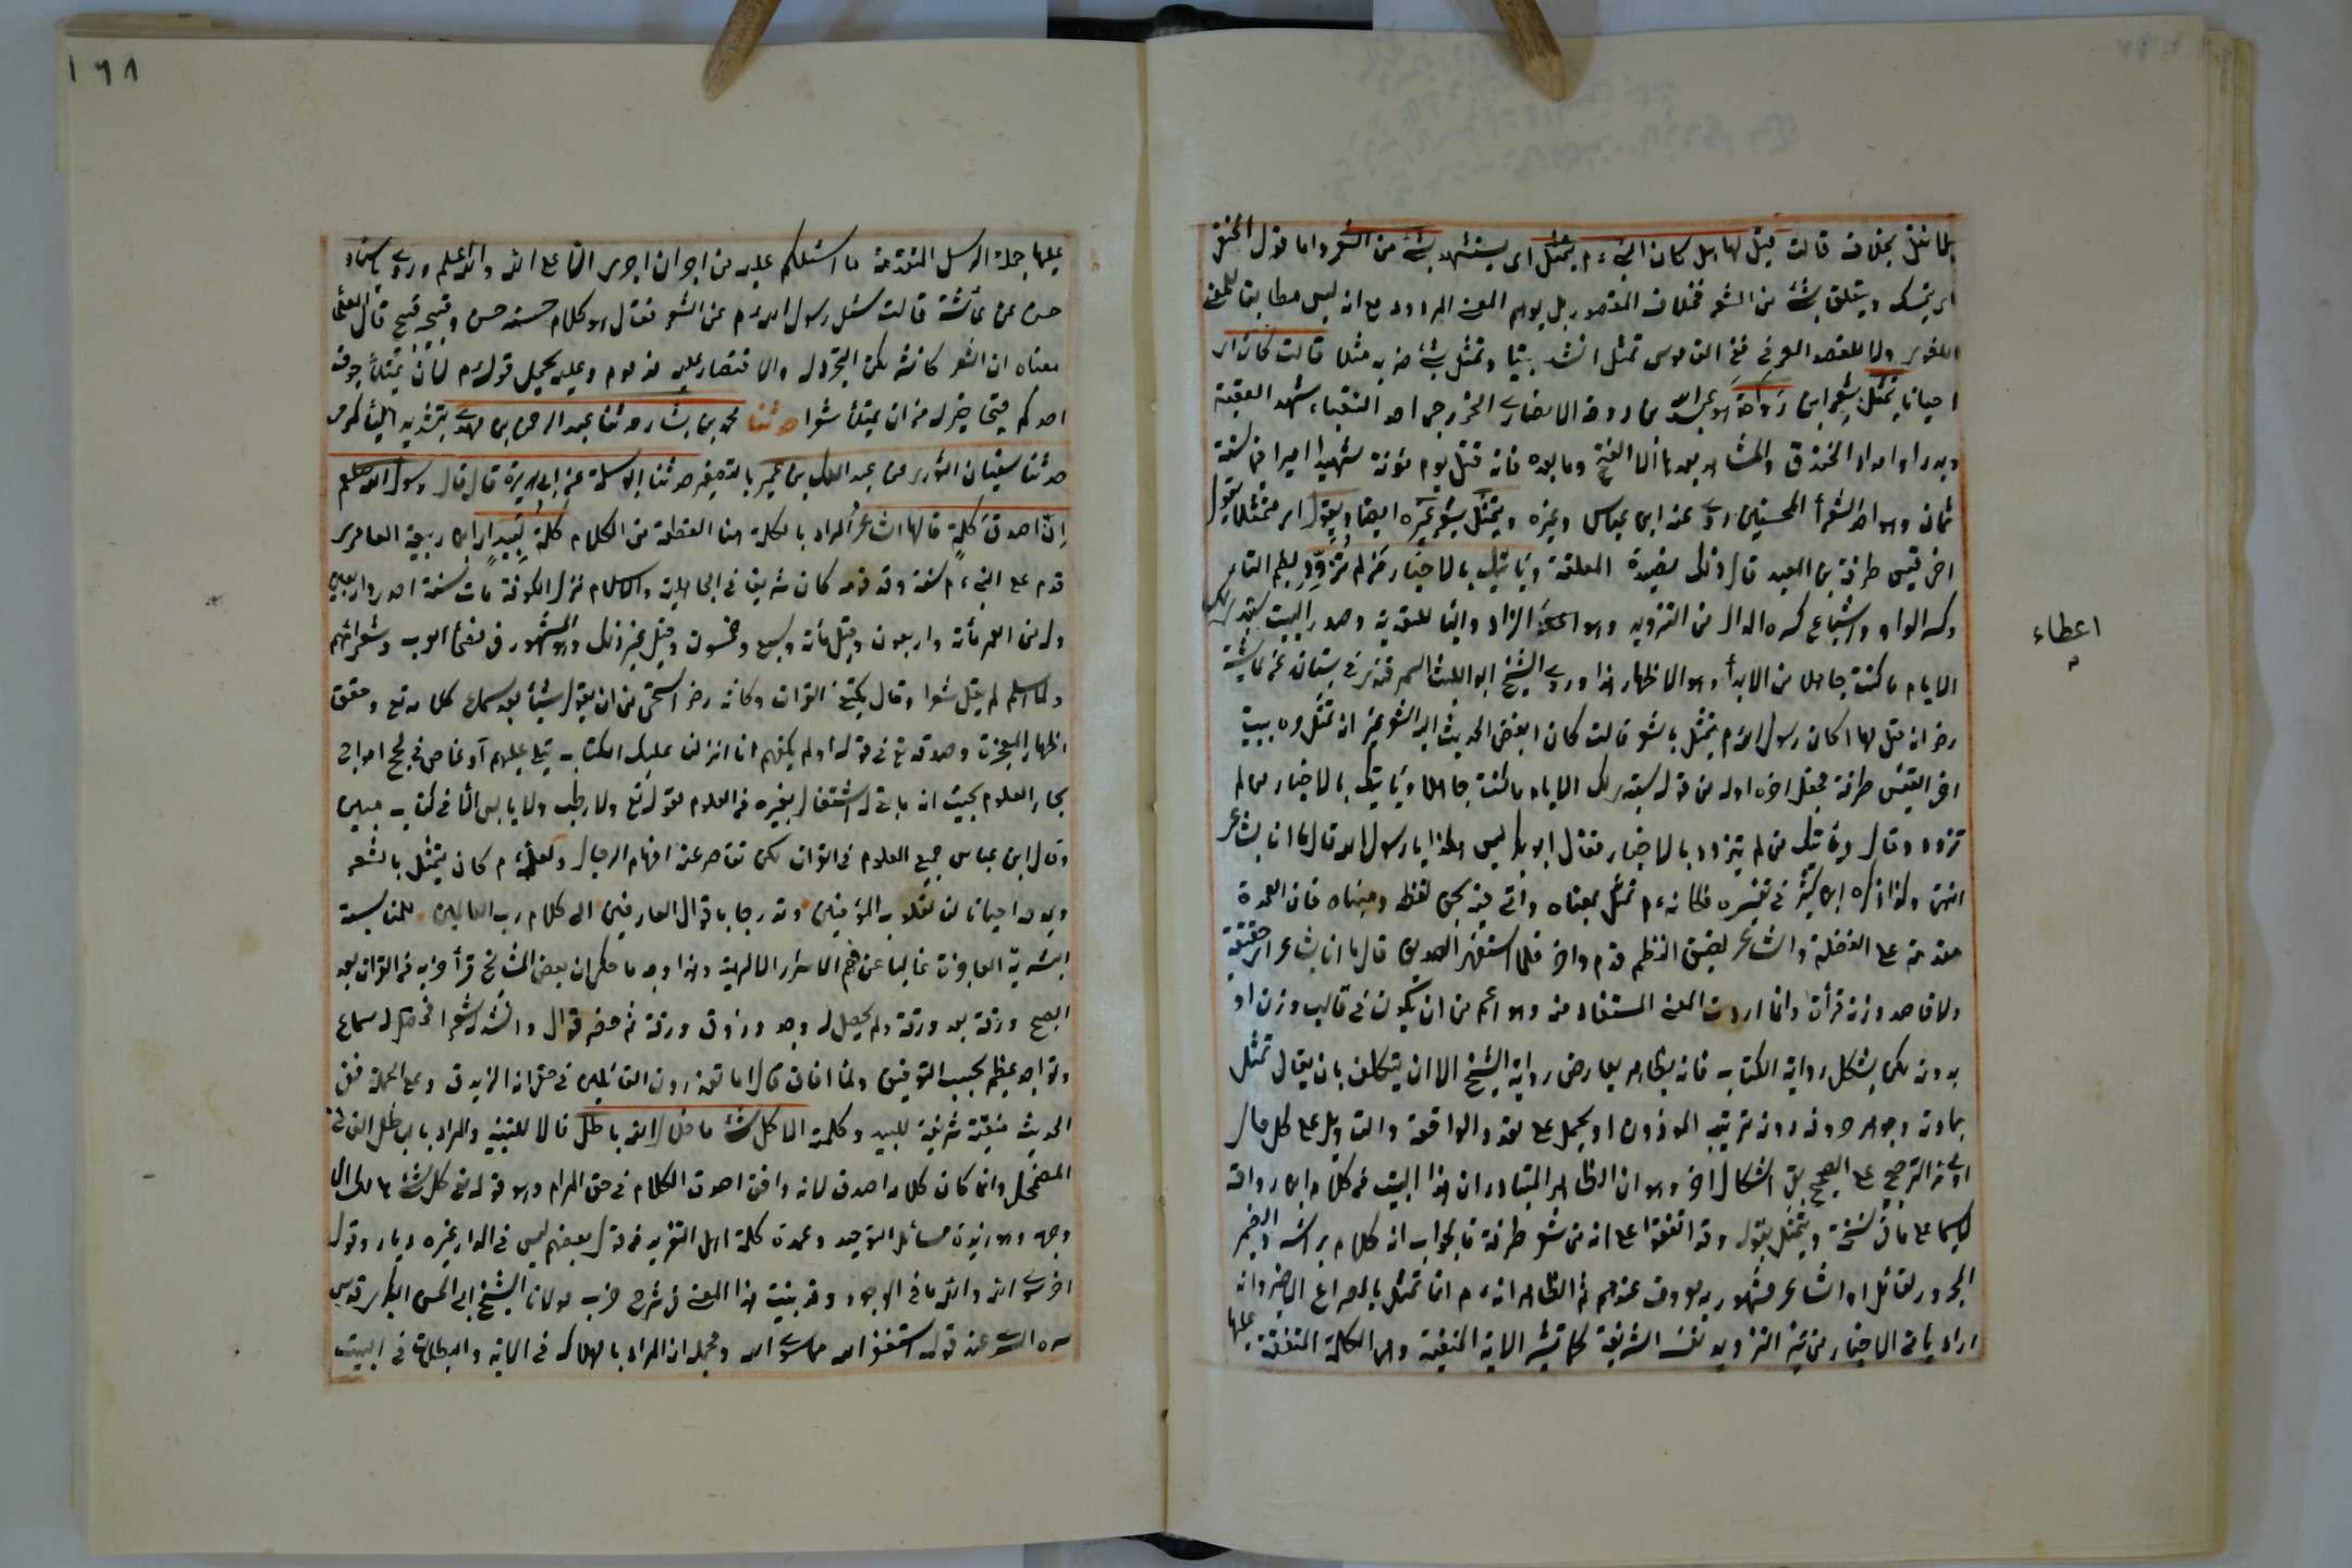 قالت قيل لها هل كان النبي ءم يتمثل اى يستشهد بشئ من الشعر واما قول الحنفى
اى يتمسك ويتعلق بشئ من الشعر فخلاف المقصود بل يوهم المعنى المردود مع انه ليس مطابقا للمعنى
اللغوى ولا للمقصد العرفى ففى القاموس تمثل انشد بيتا وتمثل بشئ ضربه مثلا قالت كان اى
احيانا يتمثل بشعر ابن رواحة هو عبد الله بن رواحة الانصارى الخزرجى احد النقباء شهد العقبة
وبدرا واحدا والخندق والمشاهد بعدها الا الفتح وما بعده فانه قتل يوم مؤتة شهيدا اميرا فيها سنة
ثمان وهو احد الشعراء المحسنين روى عنه ابن عباس وغيره ويتمثل بشعر غيره ايضا ويقول اى متمثلا بقول
اخى قيس طرفة بن العبد قال ذلك فى قصيدة المعلقة ويأتيك بالاخبار من لم تزود بضم التاء
وكسر الواو واشباع كسره الدال من التزويد وهو اعطاء الزاد والباء للتعدية وصدر البيت ستبدى لك
الايام ما كنت جاهلا من الابداء وهو الاظهار هذا وروى الشيخ ابو الليث السمرقندى فى بستانه عن عائشة
رضى انه قيل لها اكان رسول الله ءم يتمثل بالشعر قالت كان ابغض الحديث اليه الشعر غير انه تمثل مرة ببيت
اخى القيس طرفة فجعل اخره اوله من قوله ستبدى لك الايام ما كنت جاهلا ويأتيك بالاخبار من لم
تزود وقال ويأتيك من لم تزود بالاخبار فقال ابو بكر ليس هكذا يا رسول الله قال ما انا بشاعر
انتهى وكذا ذكره ابن كثير فى تفسيره فكانه ءم تمثل بمعناه واتى فيه بحق لفظه ومبناه فان العمدة
مقدمة على الفضلة والشاعر لضيق النظم قدم واخر فلما استفهر الصديق قال ما انا بشاعر اى حقيقة
ولا قاصد وزنه قرأت وانما اردت المعنى المستفاد منه وهو اعم من ان يكون فى قالب وزن او
بدونه لكن يشكل رواية الكتاب فانه بظاهره يعارض رواية الشيخ الا ان يتكلف بان يقال تمثل
بمادته وجوهر حروفه دون ترتيب الموزون او يحمل على تعدد الواقعة والتأويل على كل حال
اولى من الترجيح على الصحيح بقى اشكال اخر وهو ان الظاهر المتبادر ان هذا البيت من كلام ابن رواحة
لاسيما على ما فى نسخة ويتمثل بقوله وقد اتفقوا على انه من شعر طرفة فالجواب انه كلام برأسه والضمير
المجرور لقائل او الشاعر مشهور به معروف عندهم ثم الظاهر انه ءم انما تمثل بالمصراع الاخير وانه
اراد بآتى الاخبار من غير التزويد نفسه الشريفة كما تشير الاية المنيفة وهى الكلمة المتفقة عليها
اعطاء
١٦٨
عليها جملة الرسل المتقدمة ما اسئلكم عليه من اجر ان اجرى الا على الله والله اعلم وروى باسناد
حسن عن عائشة قالت سئل رسول الله ءم عن الشعر فقال هو كلام حسنه حسن وقبيحه قبيح قال العلماء
معناه ان الشعر كالنثر لكن التجرد له والاقتصار عليه مذموم وعليه يحمل قوله ءم لان يمتلئ جوف
احدكم قيحا خير له من ان يمتلئ شعرا حدثنا محمد بن بشار حدثنا عبد الرحمن بن مهدى بتشديد الياء كمرمى
حدثنا سفيان الثورى عن عبد الملك بن عمير بالتصغير حدثنا ابو سلمة عن ابى هريرة قال قال رسول الله صلعم
ان اصدق كلمة قالها الشاعر المراد بالكلمة هنا القطعة من الكلام كلمة لبيد اى ابن ربيعة العامرى
قدم على النبى ءم سنة وفد قومه كان شريفا فى الجاهلية والاسلام نزل الكوفة مات سنة احدى واربعين
وله من العمر مأة واربعون وقيل مأة وسبع وخمسون وقيل غير ذلك وهو المشهور فى فصحاء العرب وشعرائهم
ولما اسلم لم يقل شعرا وقال يكفينى القران وكانه رضى استحى من ان يقول شيئا بعد سماع كلامه تع وحقق
اظهار المعجزة وصدقه تع فى قوله اولم يكفهم انا انزلنا عليك الكتاب يتلى عليهم او غاص فى لجج امواج
بحار العلوم بحيث انه ما بقى له اشتغال بغيره من العلوم لقوله تع ولا رطب ولا يابس الا فى كتاب مبين
وقال ابن عباس جميع العلوم فى القران لكن تقاصر عنه افهام الرجال ولعله ءم كان يتمثل بالشعر
ويمدحه احيانا تقلوب المؤمنين وتدرجا باقوال العارفين الى كلام رب العالمين للمناسبة
البشرية العاجزة غالبا عن فهم الاسرار الالهية وهذا وجه ما حكى ان بعض المشايخ قرأ حزبه من القران بعد
الصبح ورقة بعد ورقة ولم يحصل له وجد وذوق ورقة ثم حضر قوال وانشد شعرا فحصل له سماع
وتواجد عظيم بحسب التوفيق ولما افاق قال اما تعذرون القائلين فى حق انه الزنديق وعلى الجملة ففى
الحديث منقبة شريفة للبيد وكلمته الا كل شئ ما خلا الله باطل فالا للتنبيه والمراد بالباطل الفانى
المضمحل وانما كان كلامه اصدق لانه وافق اصدق الكلام فى حق المرام وهو قوله تع كل شئ هالك الا
وجهه وهو زبدة مسائل التوحيد وعمدة كلمة اهل التفريد من قول بعضهم ليس فى الدار غيره ديار وقول
اخر سوى الله والله ما فى الوجود وقد بينت هذا المعنى فى شرح حزب مولانا الشيخ ابى الحسن البكرى قدس
سره السرى عند قوله استغفر الله مما سوى الله ومجمله ان المراد بالهلاك فى الاية والبطلان فى البيت